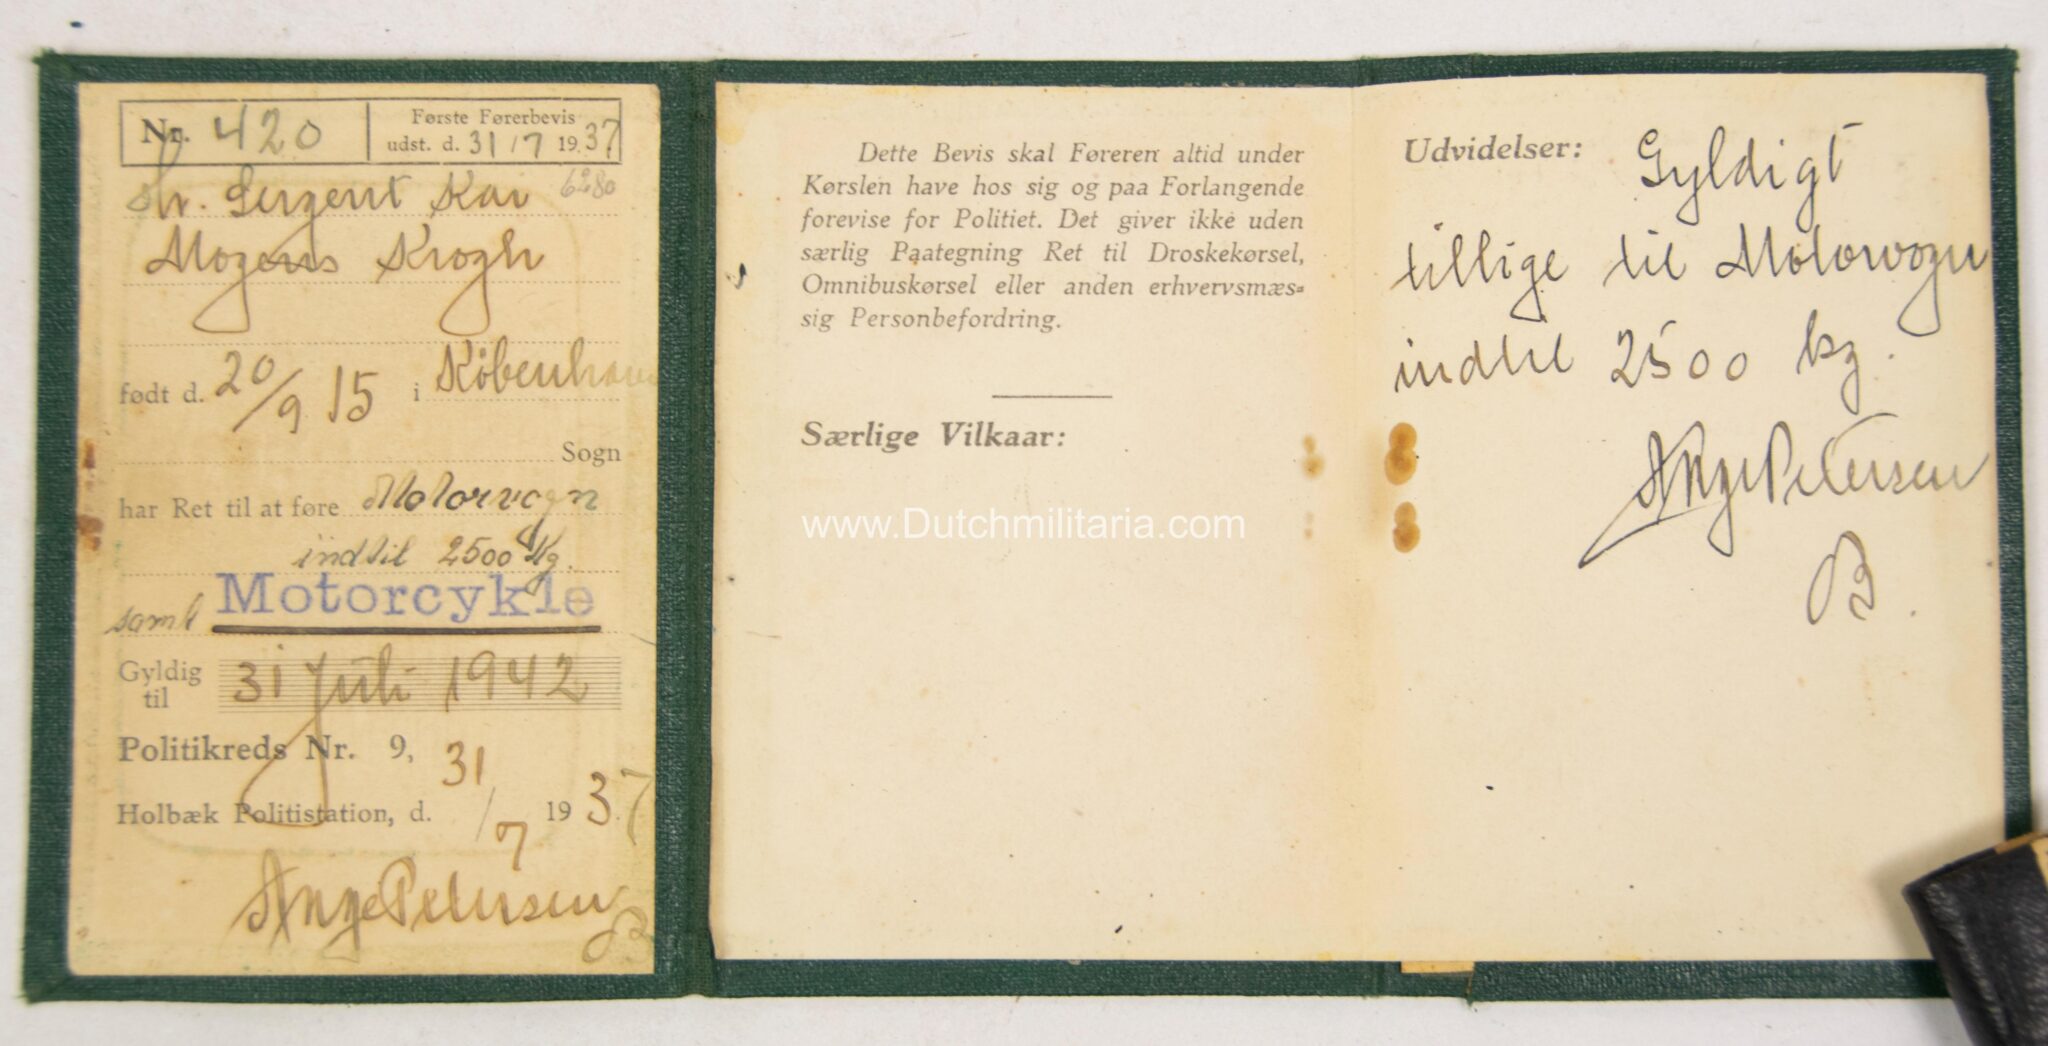 Nr. 420
Første Førerbevis
udst. d. 31/7 1937
Hr. Sergent Kai 6280
Mogens Krogh
født d. 20/9 15 i København
Sogn
har Ret til at føre Motorvogn
indtil 2500 Kg.
samt Motorcykle
Gyldig til 31 Juli 1942
Politikreds Nr. 9,
Holbæk Politistation, d. 31/7 1937
Petersen
Dette Bevis skal Føreren altid under
Kørslen have hos sig og paa Forlangende
forevise for Politiet. Det giver ikke uden
særlig Paategning Ret til Droskekørsel,
Omnibuskørsel eller anden erhvervsmæs=
sig Personbefordring.
Særlige Vilkaar:
Udvidelser: Gyldigt
tillige til Motorvogn
indtil 2500 kg.
Petersen
www.Dutchmilitaria.com